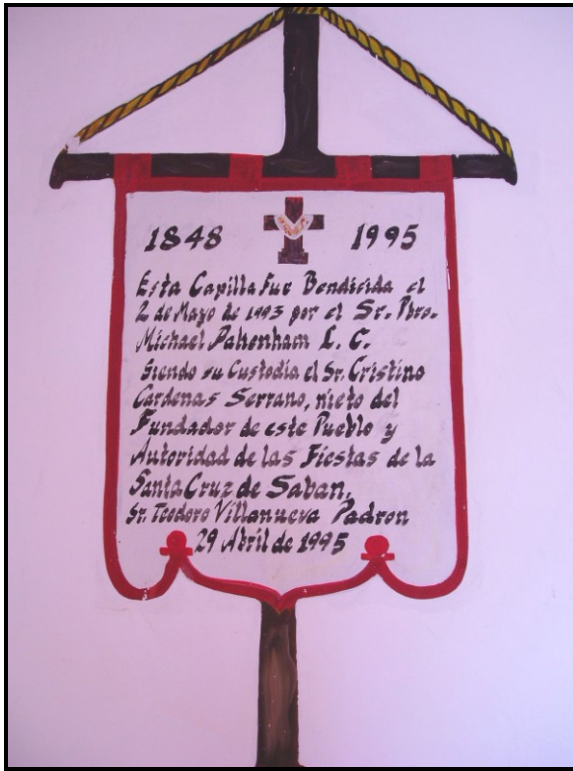 1848 1995
Esta Capilla Fue Bendicida el
2 de Mayo de 1993 por el Sr. Pbro.
Michael Pakenham L. C.
Siendo su Custodia el Sr. Cristino
Cardenas Serrano, nieto del
Fundador de este Pueblo y
Autoridad de las Fiestas de la
Santa Cruz de Saban.
Sr. Teodoro Villanueva Padron
29 Abril de 1995